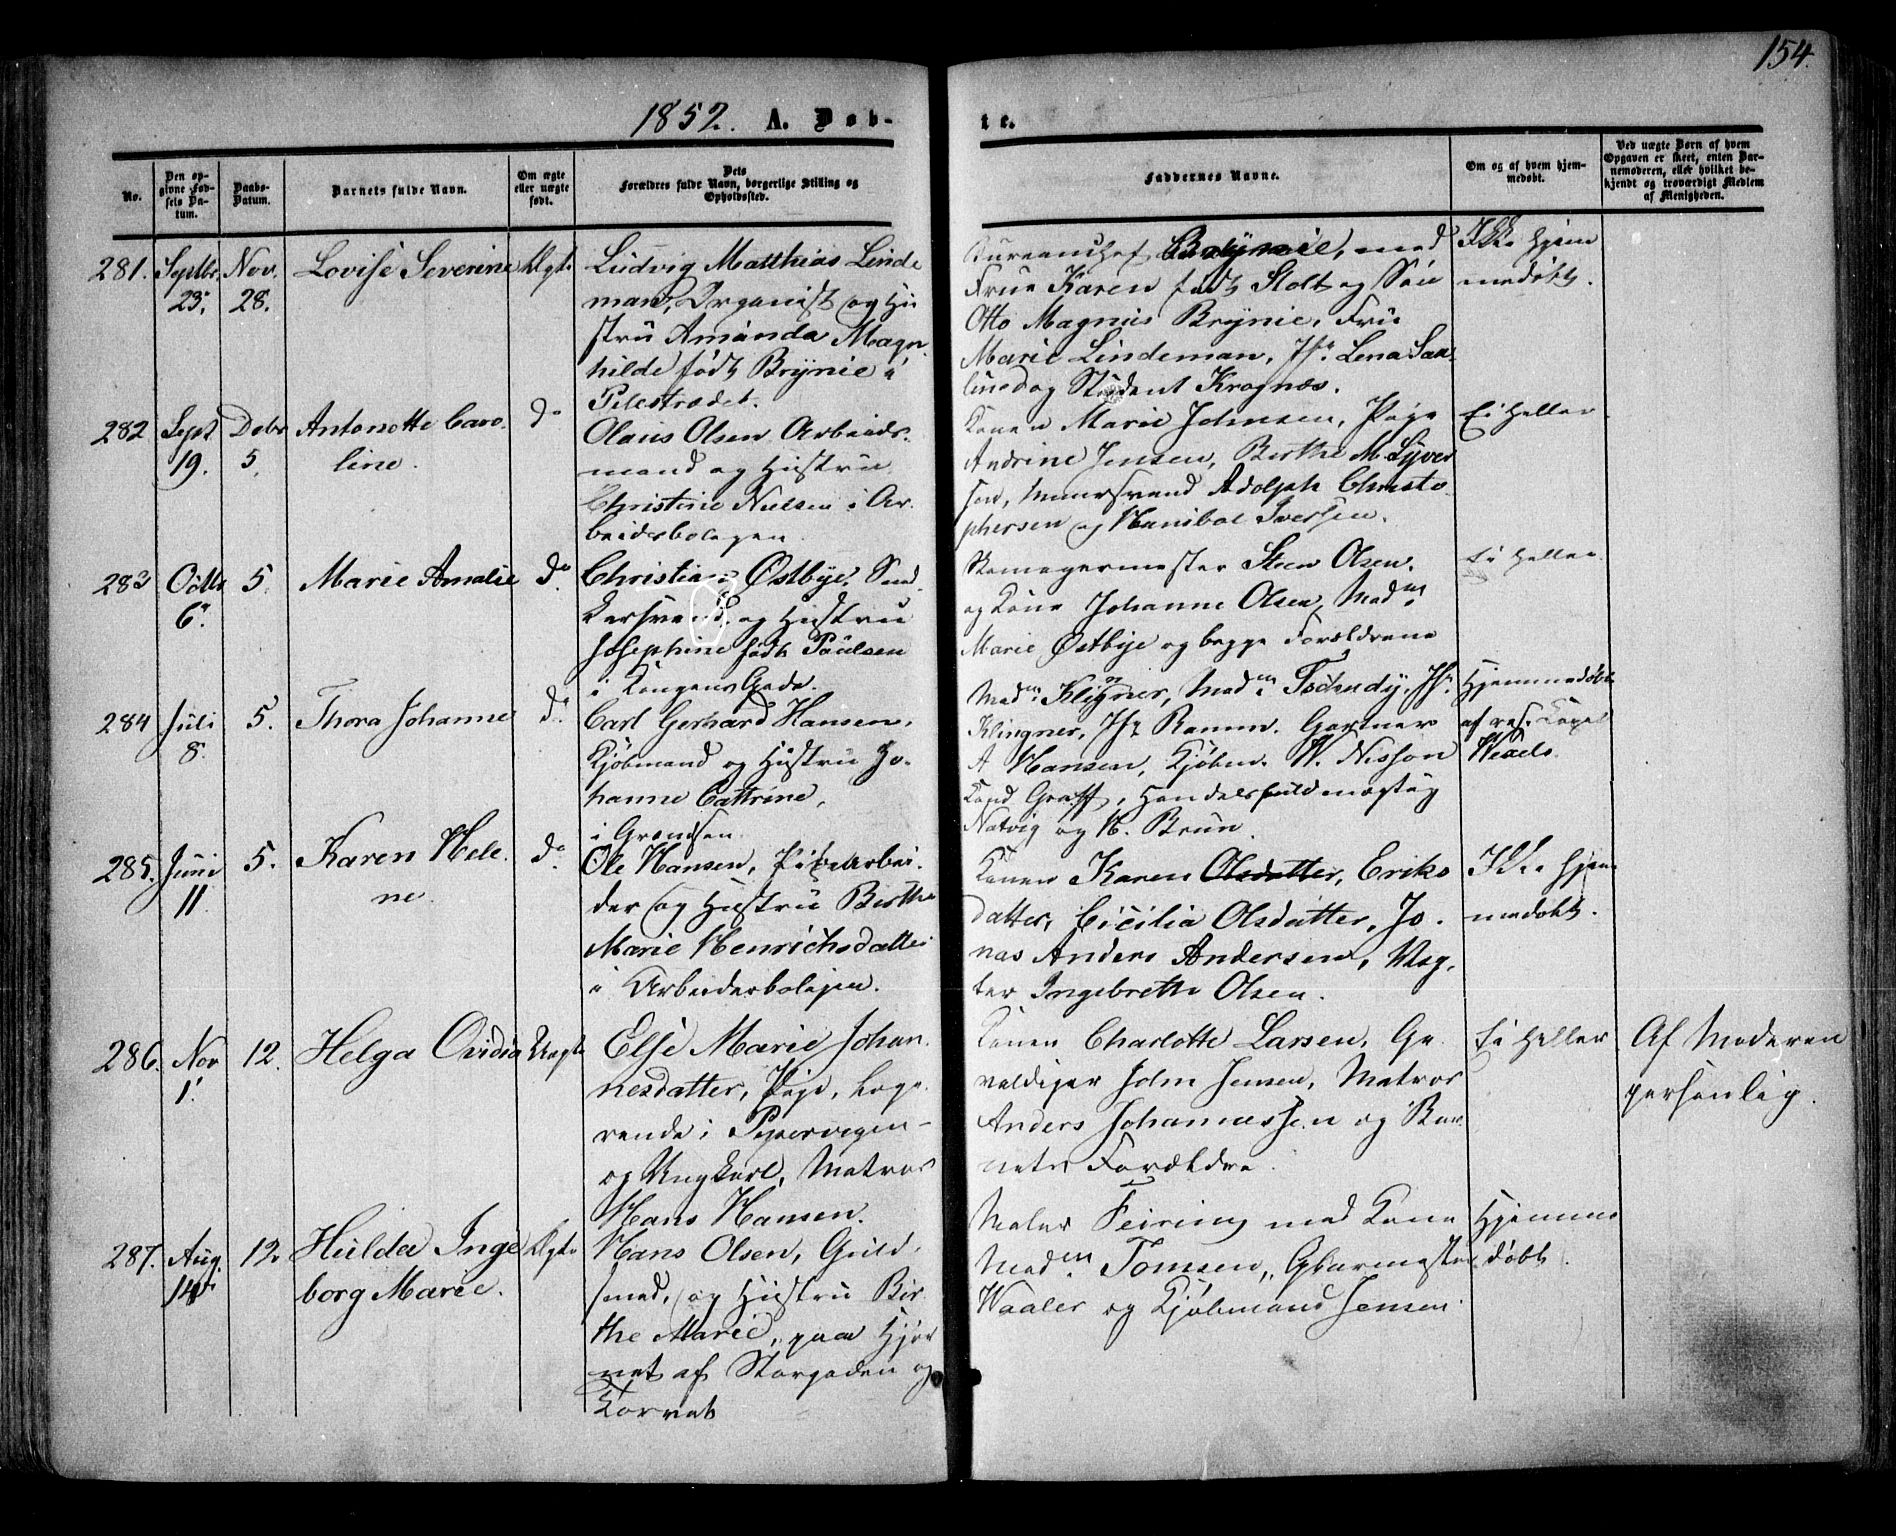 154.
1852. A. Døb-
te.
No.
Den op-
givne Fød-
sels Da-
tum.
Daabs-
Datum.
Barnets fulde Navn.
Om ægte
eller uægte
født.
Dets
Forældres fulde Navn, borgerlige Stilling og
Opholdssted.
Faddernes Navne.
Om og af hvem hjem-
medøbt.
Ved uægte Børn af hvem
Opgaven er skeet, enten Bar-
nemoderen, eller hvilket be-
kjendt og troværdigt Medlem
af Menigheden.
281. Septbr. 23. Nov. 28. Lovise Severine Ægte
Ludvig Matthias Linde
man, Organist og Hu
stru Amanda Magn
hilde født Brynie i
Pilestrædet.
Bureauchef Brynie, med
Frue Karen født Stolt og Søn
Otto Magnus Brynie, Fru
Marie Lindeman, Jfr. Lena
og Student Kragnæs.
Ikke hjem
medøbt.
282 Sept 19. Debr 5. Antonette Caro
line.
do
Olaus Olsen Arbeids-
mand og Hustru
Christine Nielsen i Ar-
beiderboligen.
Konen Marie Johnsen, Pige
Andrine Jensen, Berthe M. Syver
sen, Muursvend Adolph Christo
phersen og Hanibal Iversen.
Ei heller
283 Octbr 6. 5. Marie Amalie do
Christian Østbye, Sned
kersvend, og Hustru
Josephine født Paulsen
i Kongens Gade.
Skomagermester Steen Olsen.
og Kone Johanne Olsen, Madm.
Marie Østbye og begge Forældrene
Ei heller
284 Juli 8. 5. Thora Johanne do
Carl Gerhard Hansen,
Kjøbmand og Hustru Jo-
hanne Cathrine,
i Grændsen.
Madm. Kligner, Madm. Tschudy, Jfr.
Klingner, Jfr. Ramm. Gartner
A Hansen, Kjøbm. W. Nisson
Cand Graff, Handelsfuldmægtig
Natvig og N. Brun.
Hjemmedøbt
af res. Capel
Wexels.
285. Juni 11 5. Karen Hele
ne.
do
Ole Hansen, Arbei-
der og Hustru Berthe
Marie Henrichsdatter
i Arbeiderboligen.
Konen Karen Olsdatter, Eriks
datter, Cicilia Olsdatter, Jo-
nas Anders Andersen, Væg-
ter Ingebreth Olsen.
Ikke hjem
medøbt.
286. Nov 1. 12. Helga Ovidia Uægte
Else Marie Johan
nesdatter, Pige, loge
rende i Pipervigen-
og Ungkarl, Matros
Hans Hansen.
Konen Charlotte Larsen, Ge
valdiger John Jensen, Matros
Anders Johannessen og Bar
nets Forældre.
Ei heller
Af Moderen
personlig.
287. Aug. 14de 12. Hulda Inge
borg Marie.
Ægte
Hans Olsen, Guld-
smed, og Hustru Bir
the Marie, paa Hjør
net af Storgaden og
Torvet
Maler Feiring med Kone
Madm. Tomsen, Glarmester
Waaler og Kjøbmand Jensen.
Hjemme
døbt.